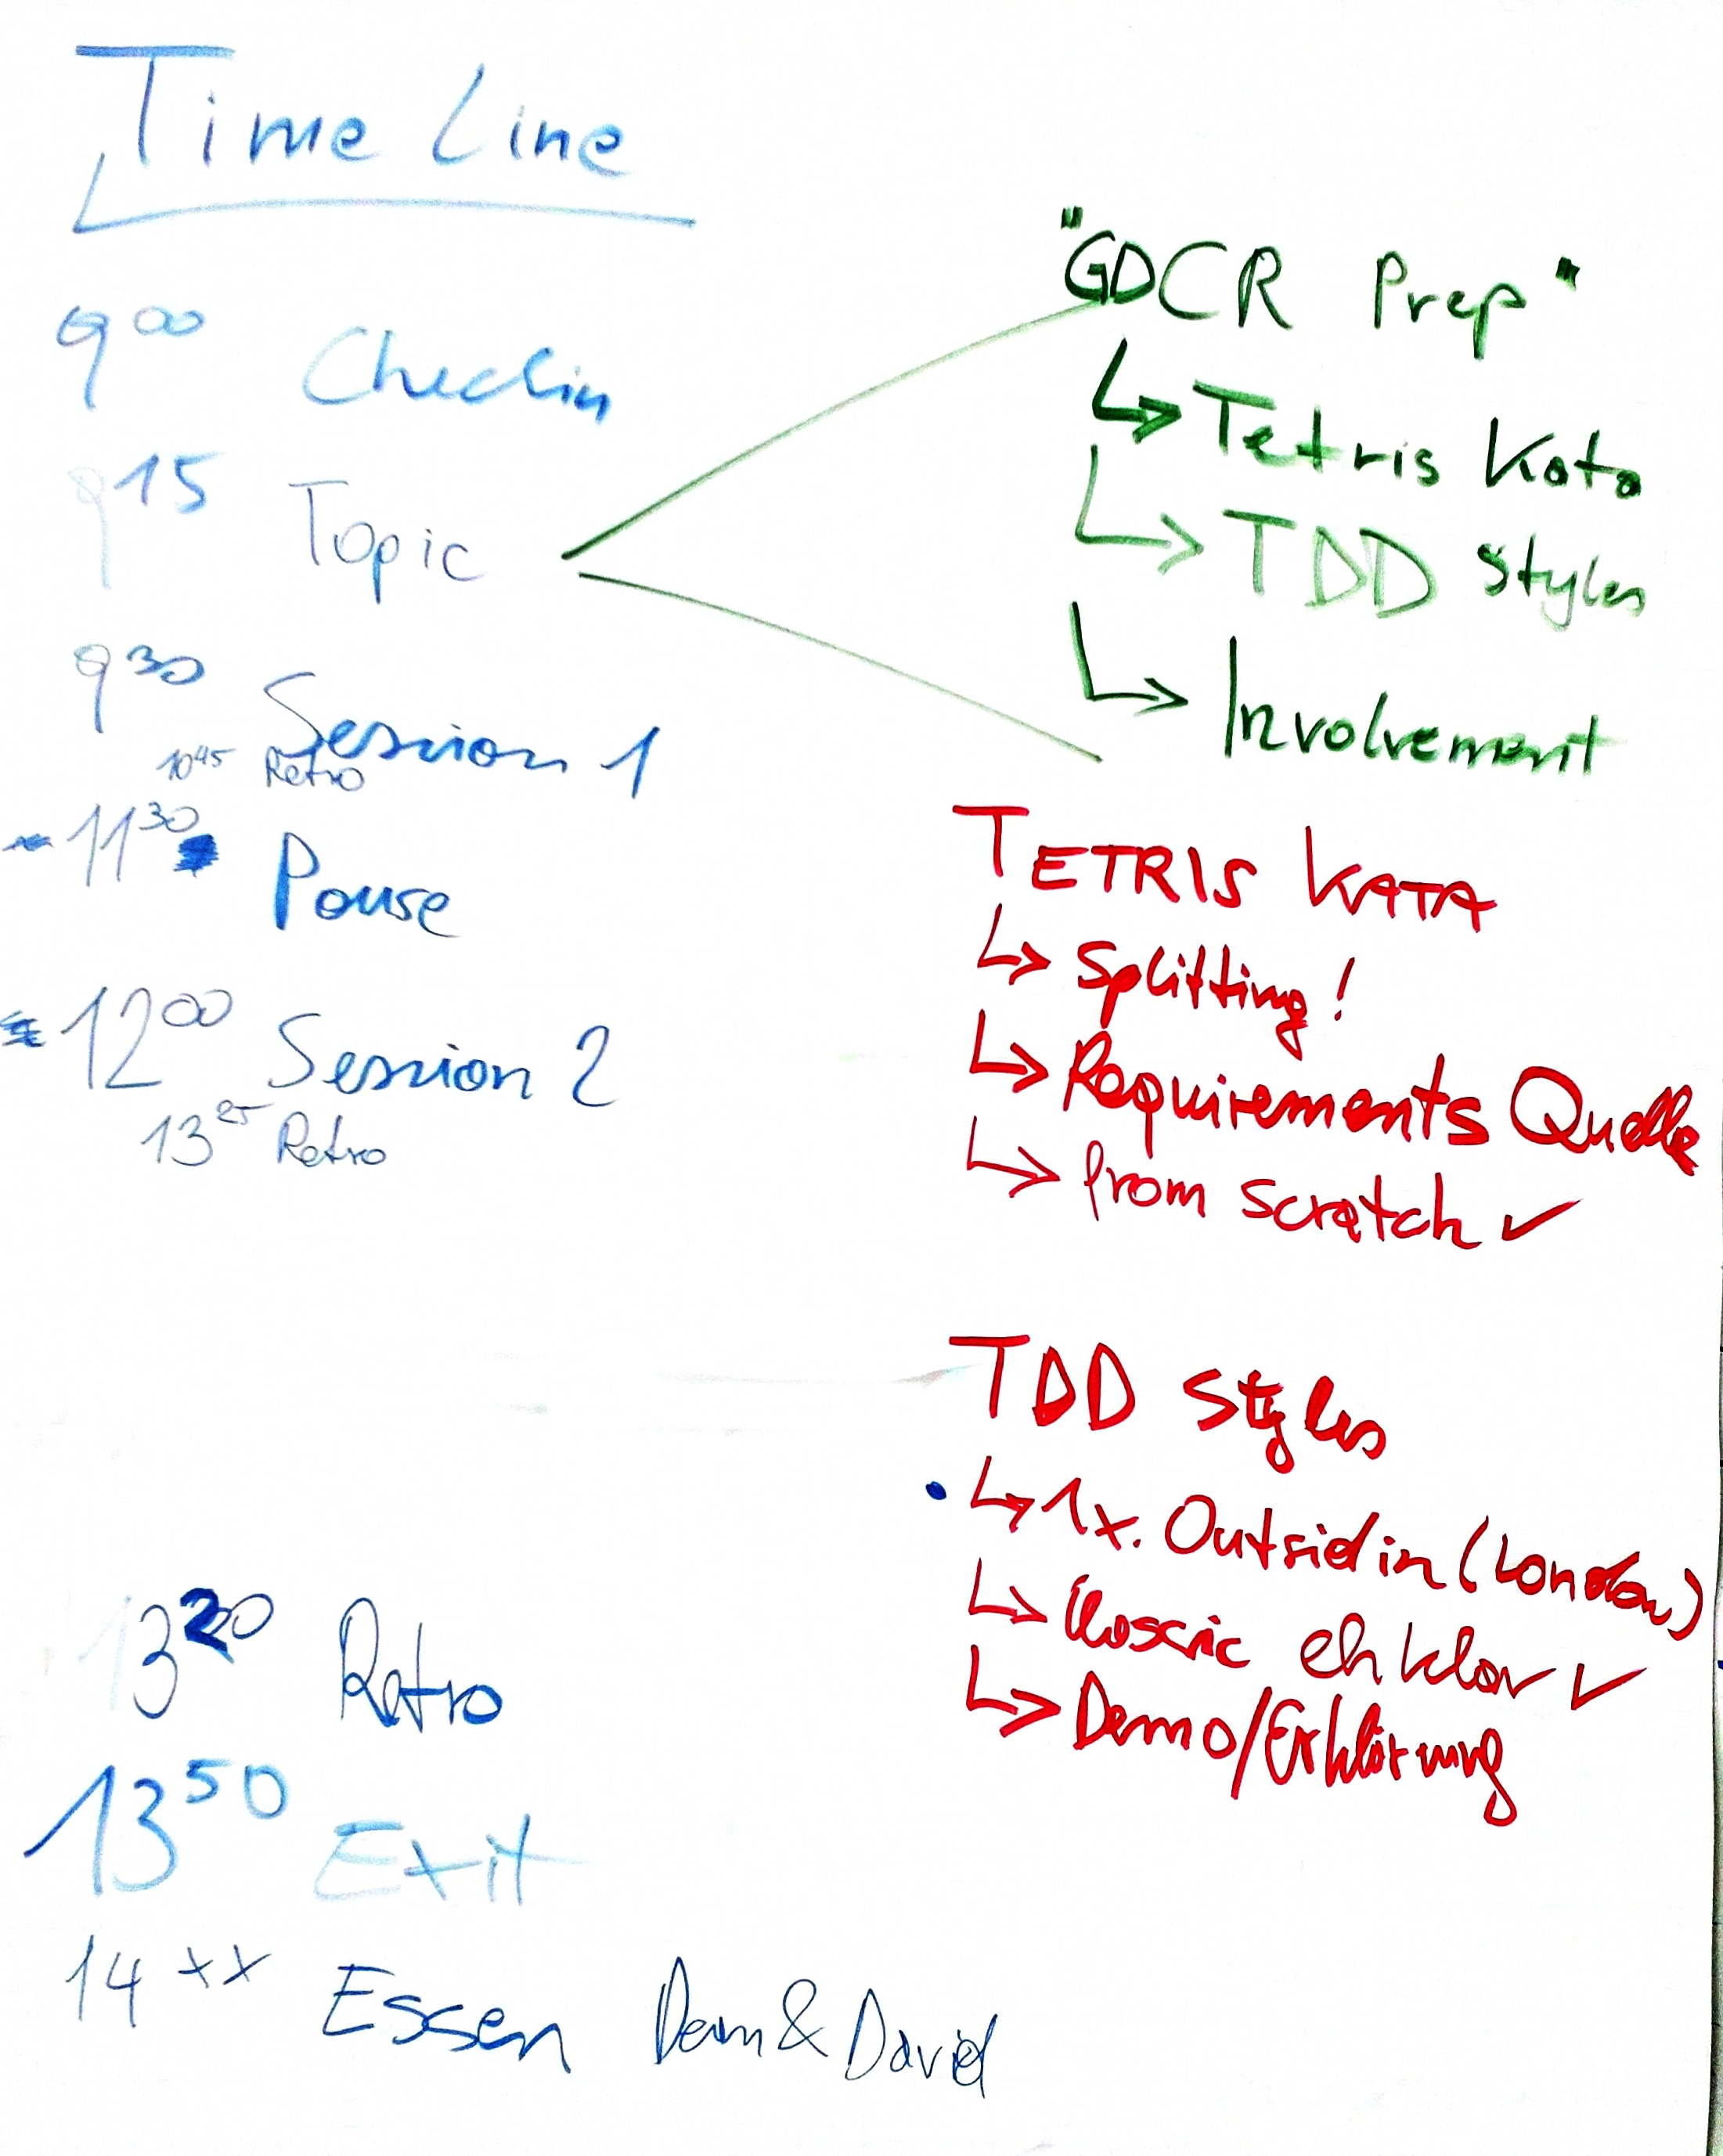 Time Line
9 00 Checkin
9 15 Topic
9 30 Session 1
10 45 Retro
~ 11 30 Pause
12 00 Session 2
13 25 Retro
13 20 Retro
13 50 Exit
14 xx Essen & David
"GDCR Prep"
↳ Tetris Kata
↳ TDD Styles
↳ Involvement
TETRIS KATA
↳ Splitting!
↳ Requirements Quelle
↳ from scratch ✓
TDD Styles
• ↳ 1x. Outsidin (London)
↳ Classic eh klar ✓
↳ Demo/Erklärung